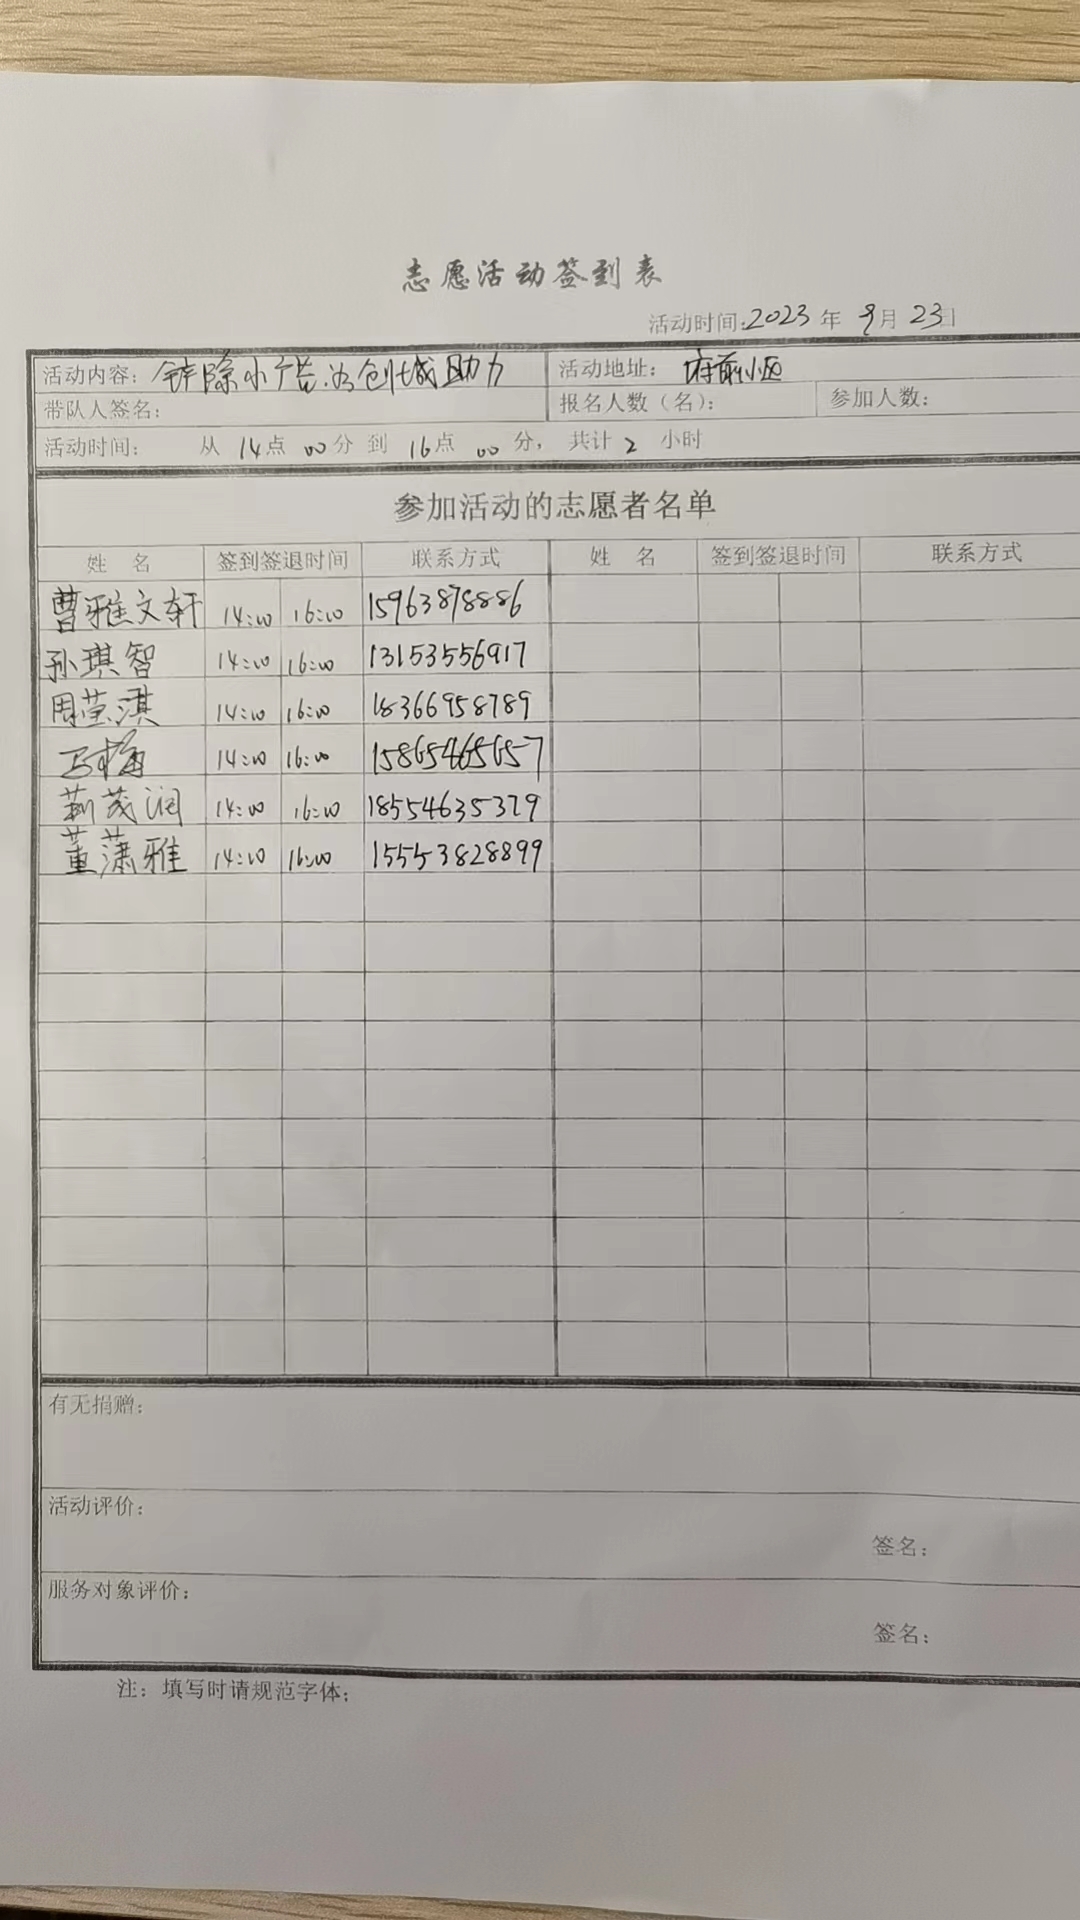 志愿活动签到表
活动时间:2023年 9月 23日
活动内容: 铲除小广告.为创城助力 活动地址: 府前小区
带队人签名: 报名人数(名): 参加人数:
活动时间: 从 14点 00分 到 16点 00分, 共计 2 小时
参加活动的志愿者名单
姓 名 签到签退时间 联系方式 姓 名 签到签退时间 联系方式
曹雅文轩 14:00 16:00 15963878886
孙琪智 14:00 16:00 13153556917
周莹淇 14:00 16:00 18366958789
马梅 14:00 16:00 15865465657
荆茂润 14:00 16:00 18554635379
董潇雅 14:00 16:00 15553828899
有无捐赠:
活动评价:
签名:
服务对象评价:
签名:
注: 填写时请规范字体;